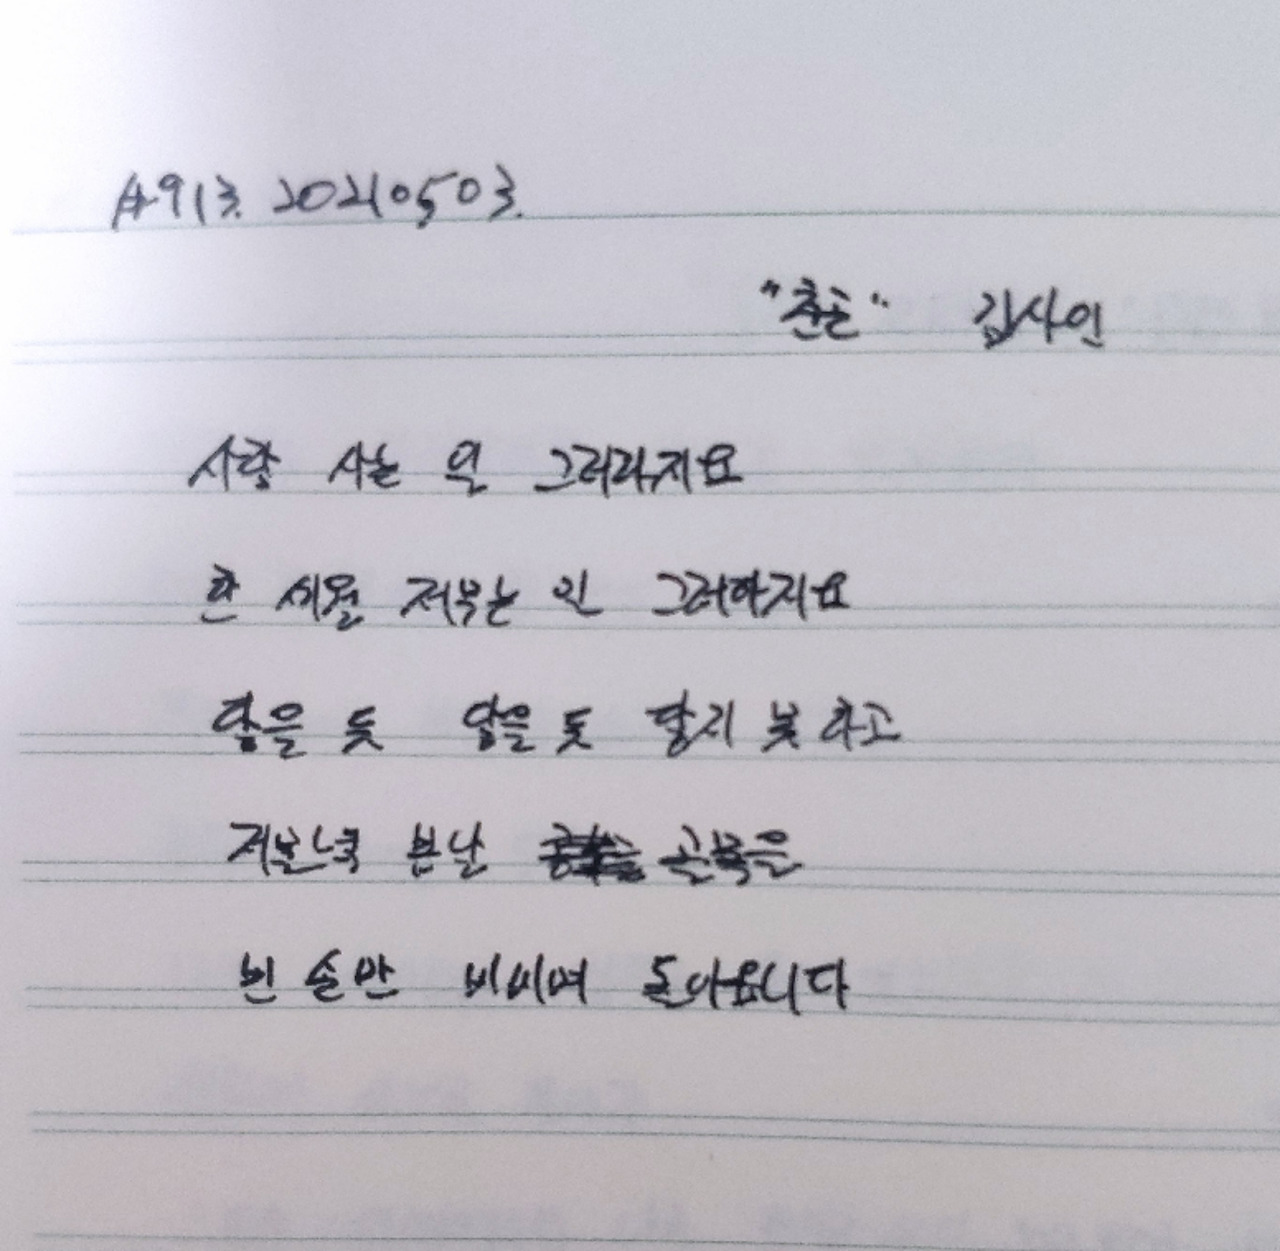 #913. 20210503.
"춘곤" 김사인
사람 사는 일 그러하지요
한 세월 저무는 일 그러하지요
닿을 듯 닿을 듯 닿지 못하고
저물녘 봄날 골목을
빈 손만 비비며 돌아옵니다